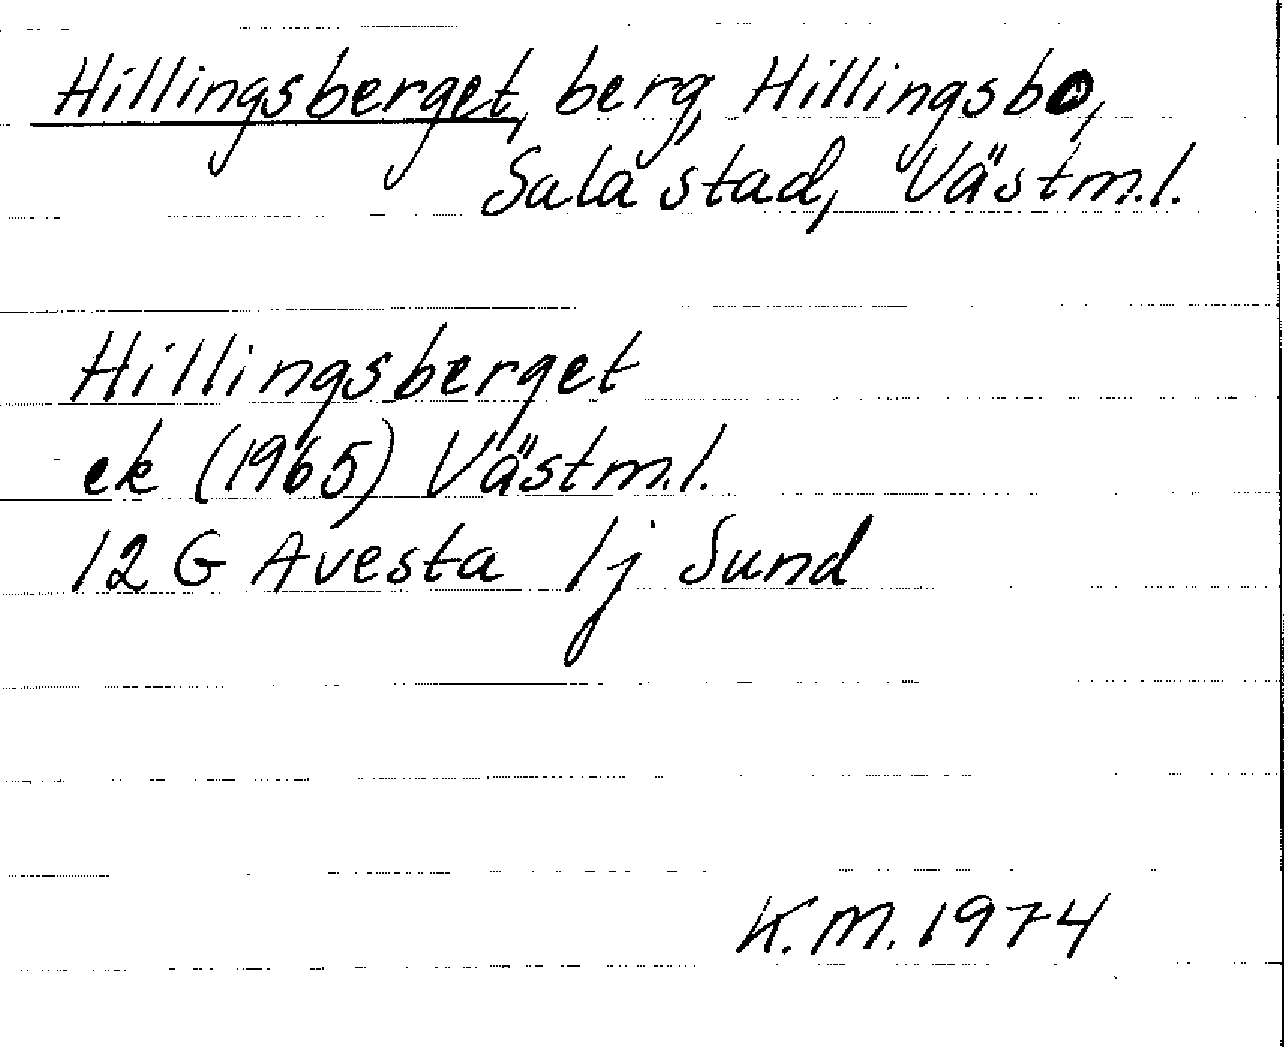 Hillingsberget, berg, Hillingsbo,
Sala stad, Västm.l.
Hillingsberget
ek (1965) Västm.l.
12 G Avesta 1j Sund
K.M. 1974